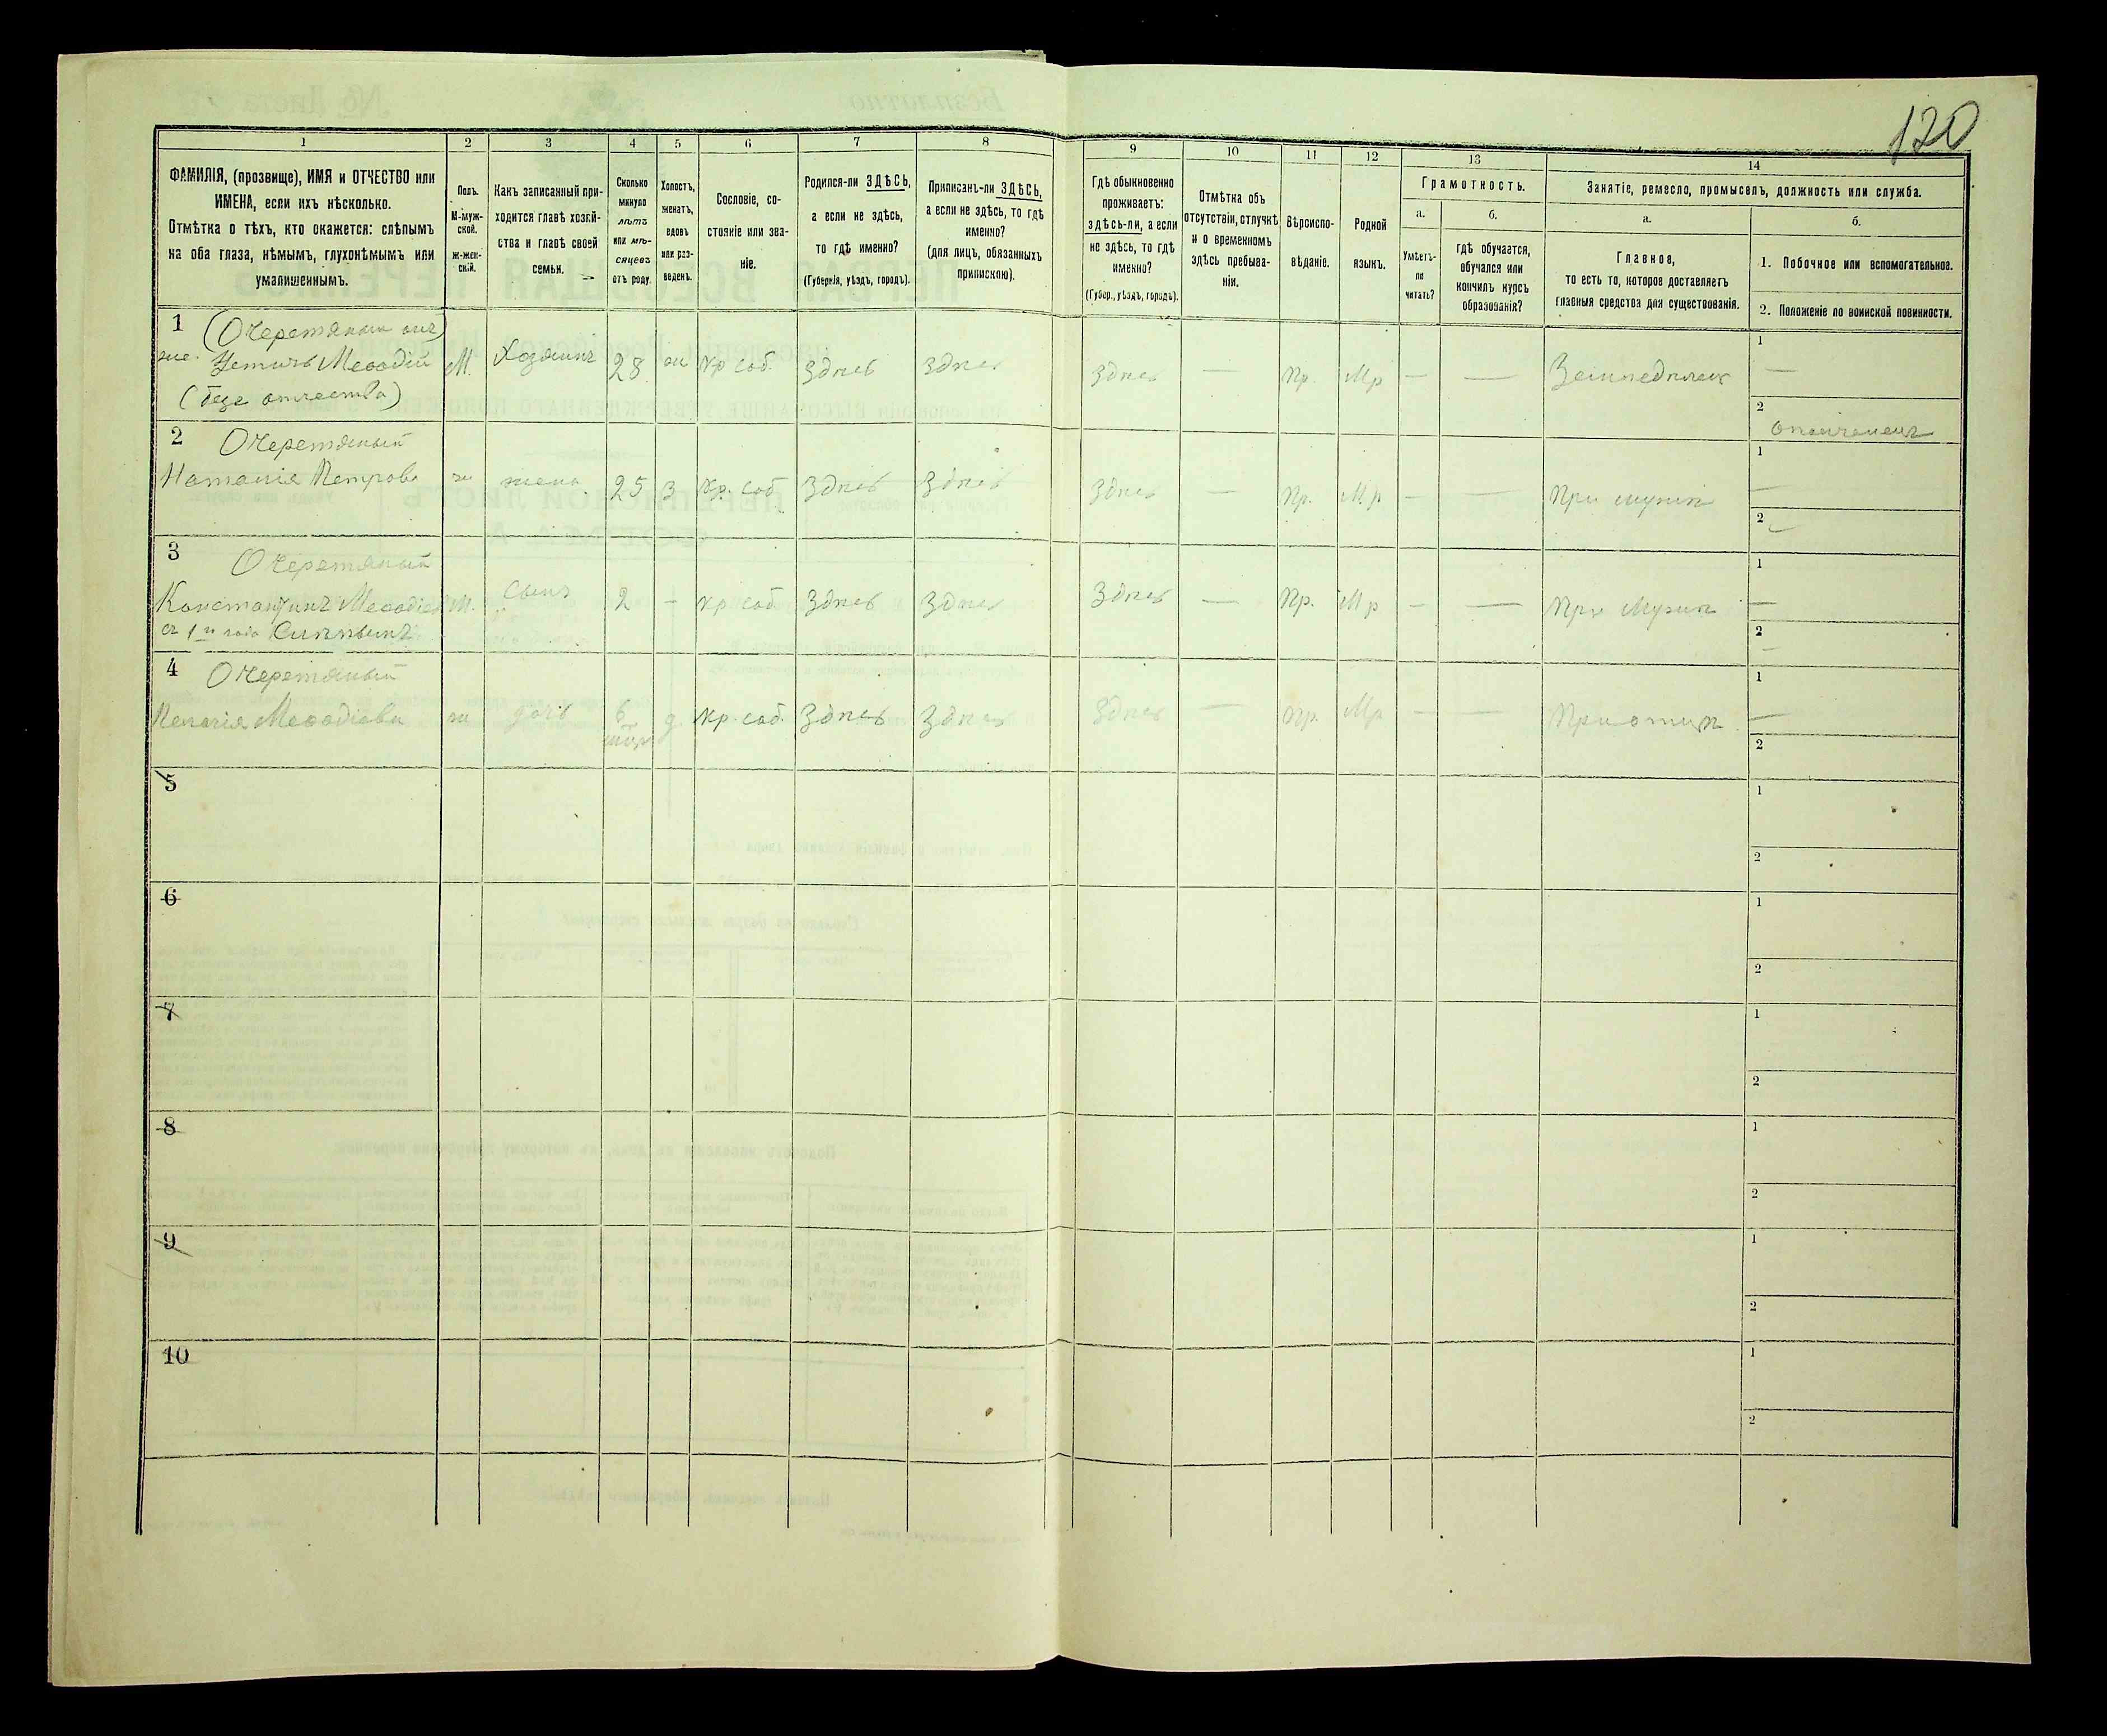 120
1 2 3 4 5 6 7 8 9 10 11 12 13 14
ФАМИЛІЯ, (прозвище), ИМЯ и ОТЧЕСТВО или
ИМЕНА, если ихъ нѣсколько.
Отмѣтка о тѣхъ, кто окажется: слѣпымъ
на оба глаза, нѣмымъ, глухонѣмымъ или
умалишеннымъ.
Полъ.
М-муж-
ской.
ж-жен-
скій.
Какъ записанный при-
ходится главѣ хозяй-
ства и главѣ своей
семьи.
Сколько
минуло
лѣтъ
или мѣ-
сяцевъ
отъ роду.
Холостъ,
женатъ,
вдовъ
или раз-
веденъ.
Сословіе, со-
стояніе или зва-
ніе.
Родился-ли ЗДѢСЬ,
а если не здѣсь,
то гдѣ именно?
(Губернія, уѣздъ, городъ).
Приписанъ-ли ЗДѢСЬ,
а если не здѣсь, то гдѣ
именно?
(для лицъ, обязанныхъ
припискою).
Гдѣ обыкновенно
проживаетъ:
здѣсь-ли, а если
не здѣсь, то гдѣ
именно?
(Губер., уѣздъ, городъ).
Отмѣтка объ
отсутствіи, отлучкѣ
и о временномъ
здѣсь пребыва-
ніи.
Вѣроиспо-
вѣданіе.
Родной
языкъ.
Грамотность.
а.
Умѣетъ-
ли
читать?
б.
гдѣ обучается,
обучался или
кончилъ курсъ
образованія?
Занятіе, ремесло, промыселъ, должность или служба.
а.
Главное,
то есть то, которое доставляетъ
главныя средства для существованія.
б.
1. Побочное или вспомогательное.
2. Положеніе по воинской повинности.
1 (Очеретяный
Меѳодій М. Хозяинъ 28 Кр. соб. Здѣсь Здѣсь Здѣсь — Пр. Мр — — 1 —
(безъ отчества) 2
ополченецъ
2 Очеретяный
Наталія Петрова ж жена 25 З Кр. соб Здѣсь Здѣсь Здѣсь — Пр. М.р — — При мужѣ 1 —
2
3 Очеретяный
Константинъ Меѳодіев М. Сынъ 2 — кр соб Здѣсь Здѣсь Здѣсь — Пр. Мр — — При 1 —
2 —
4 Очеретяный
Пелагія Меѳодіева ж дочь 6 д. кр. соб. Здѣсь Здѣсь Здѣсь — Пр. Мр — — При отцѣ 1 —
2
5 1
2
6 1
2
7 1
2
8 1
2
9 1
2
10 1
2